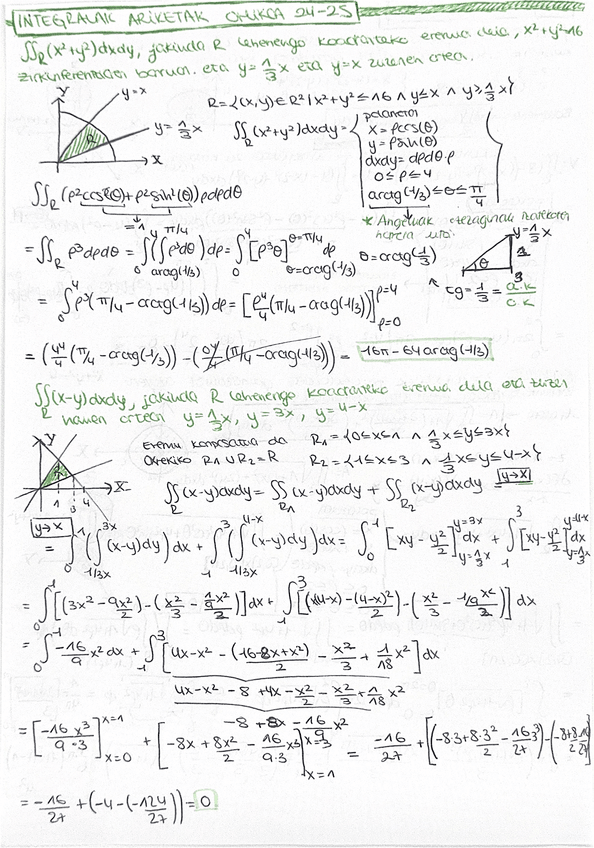 INTEGRALAK ARIKETAK OHIKOA 24-25
∬_R (x²+y²)dxdy, jakinda R lehenengo koadranteko eremua dela, x²+y²=16
zirkunferentziaren barruan eta y=1/3x eta y=x zuzenen artean.
Y y=x R={(x,y)∈R²| x²+y²≤16 ∧ y≤x ∧ y≥1/3x}
y=1/3x ∬_R (x²+y²)dxdy= polarretan
R X x=ρcos(θ)
y=ρsin(θ)
dxdy=dρdθ·ρ
0≤ρ≤4
arctg(1/3)≤θ≤π/4
∬_R (ρ²cos²(θ)+ρ²sin²(θ))ρdρdθ
=1
= ∬_R ρ³dρdθ = ∫₀⁴(∫_{arctg(1/3)}^{π/4} ρ³dθ)dρ = ∫₀⁴[ρ³θ]_{θ=arctg(1/3)}^{θ=π/4} dρ θ=arctg(1/3) θ y=1/3x 1 3
tg=1/3=a.k/o.k
= ∫₀⁴ ρ³(π/4-arctg(1/3))dρ = [ρ⁴/4(π/4-arctg(1/3))]_{ρ=0}^{ρ=4}
= (4⁴/4(π/4-arctg(1/3))-(0⁴/4(π/4-arctg(1/3)) = 16π-64arctg(1/3)
∬_R (x-y)dxdy, jakinda R lehenengo koadranteko eremua dela eta zuzen
hauen artean y=1/3x, y=3x, y=4-x
Y Eremu konposatua da R₁={0≤x≤1 ∧ 1/3x≤y≤3x}
Ondorioz R₁∪R₂=R R₂={1≤x≤3 ∧ 1/3x≤y≤4-x}
1 3 4 X ∬_R (x-y)dxdy = ∬_{R₁} (x-y)dxdy + ∬_{R₂} (x-y)dxdy = y→x
y→x = ∫₀¹(∫_{1/3x}^{3x} (x-y)dy)dx + ∫₁³(∫_{1/3x}^{4-x} (x-y)dy)dx = ∫₀¹[xy-y²/2]_{y=1/3x}^{y=3x} dx + ∫₁³[xy-y²/2]_{y=1/3x}^{y=4-x} dx
= ∫₀¹[(3x²-9x²/2)-(x²/3-1/9x²/2)]dx + ∫₁³[(x(4-x)-(4-x)²/2)-(x²/3-1/9x²/2)]dx
= ∫₀¹ -16/9x²dx + ∫₁³[4x-x²-(16-8x+x²)/2-x²/3+1/18x²]dx
4x-x²-8+4x-x²/2-x²/3+1/18x²
-8+8x-16/9x²
= [-16x³/9·3]_{x=0}^{x=1} + [-8x+8x²/2-16x³/9·3]_{x=1}^{x=3} = -16/27+[(-8·3+8·3²/2-16/27 3³)-(-8+8/2-16/27)]
= -16/27+(-4-(-124/27)) = 0